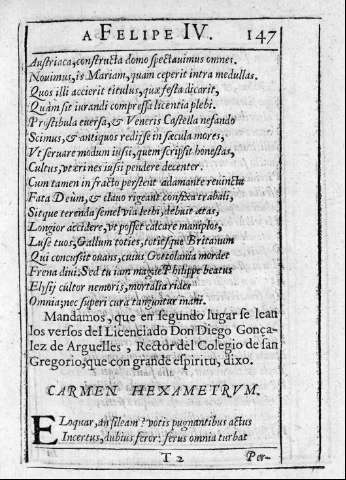 A FELIPE IV. 147
Austriaca, constructa domo spectauimus omnes.
Nouimus, is Mariam, quam ceperit intra medullas.
Quos illi accierit titulus, quæ festa dicarit,
Quàm sit iurandi compressa licentia plebi.
Prostibula euersa, & Veneris Castella nefando
Scimus, & antiquos redijsse in sæcula mores,
Vt seruare modum iussit, quem scripsit honestas,
Cultus, vt crines iussit pendere decenter.
Cum tamen infracto perstent adamante reuincta
Fata Deûm, & clauo rigeant confixa trabali,
Sitque terenda semel via lethi, debuit ætas,
Longior accidere, vt posset calcare maniplos,
Luse tuos, Gallum toties, totiesque Britanum
Qui concussit ouans, cuius Gottolania mordet
Frena diu: Sed tu iam magne Philippe beatus
Elysij cultor nemoris, mortalia rides
Omnia; nec superi cura tanguntur mani.
Mandamos, que en segundo lugar se lean
los versos del Licenciado Don Diego Gonça-
lez de Arguelles, Rector del Colegio de san
Gregorio, que con grande espiritu, dixo.
CARMEN HEXAMETRVM.
ELoquar, an sileam? votis pugnantibus actus
Incertus, dubius feror: ferus omnia turbat
T 2 Per-